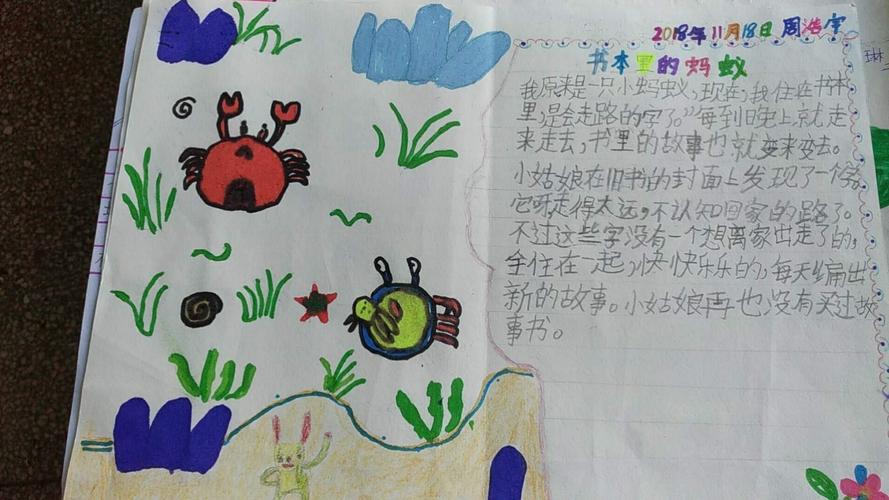 2018年11月18日 周浩宇
书本里的蚂蚁
我原来是一只小蚂蚁,现在,我住在书本
里,是会走路的字了。”每到日晚上,就走
来走去,书里的故事也就变来变去。
小姑娘在旧书的封面上发现了一个字,
它呀走得太远,不认知回家的路了。
不过这些字没有一个想离家出走了的,
全住在一起,快快乐乐的,每天编出
新的故事。小姑娘再也没有买过故
事书。
琳